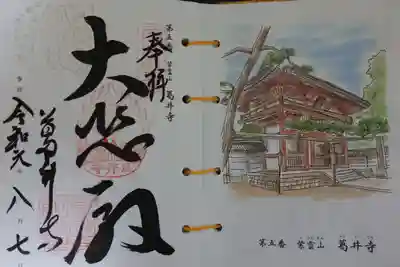 第五番 紫雲山 葛井寺
奉拝
大悲殿
葛井寺
令和元年八月七日
第五番 紫雲山 葛井寺